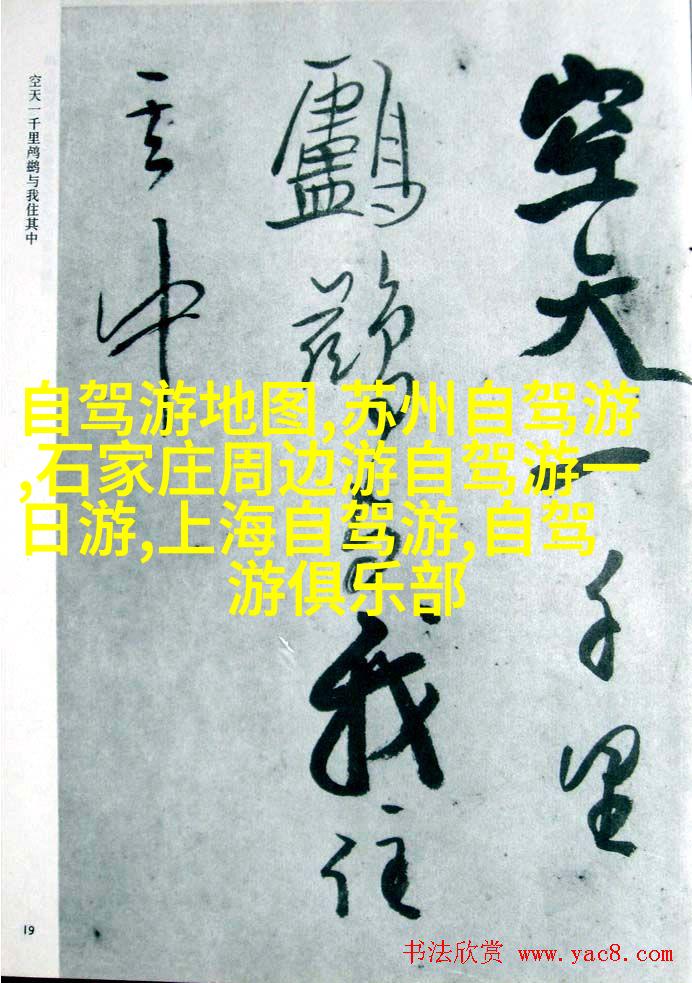 空天一千里
鸕鷀我住
其中
空天一千里鸬鹚与我住其中
自驾游地图,苏州自驾游
,石家庄周边游自驾游一
日游,上海自驾游,自驾
游俱乐部
19
书法欣赏 www.yac8.com